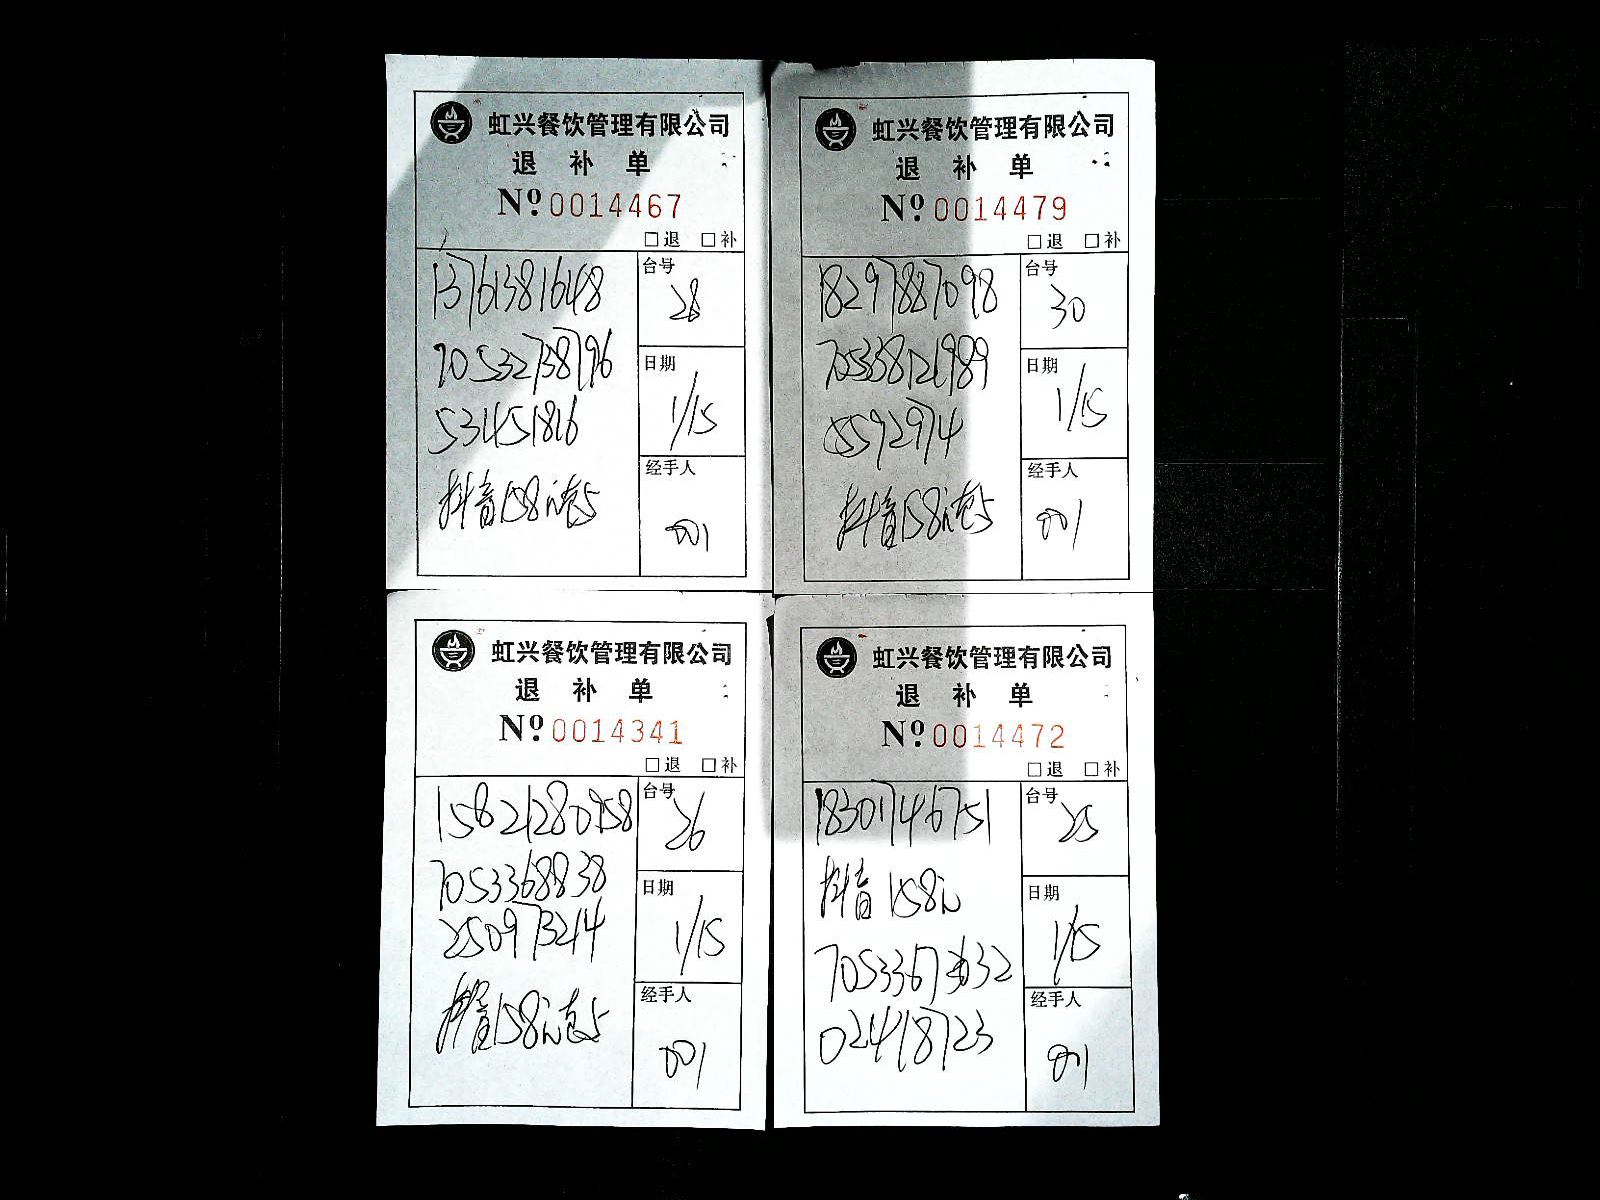 虹兴餐饮管理有限公司
退 补 单
Nº 0014467
□退 □补
13761381648
70532738796
531451816
抖音158元套5
台号
28
日期
1/15
经手人
001
虹兴餐饮管理有限公司
退 补 单
Nº 0014479
□退 □补
18297887098
705338121989
5592974
抖音158元套5
台号
30
日期
1/15
经手人
001
虹兴餐饮管理有限公司
退 补 单
Nº 0014341
□退 □补
15821280958
7053368838
250973214
抖音158元套5
台号
26
日期
1/15
经手人
001
虹兴餐饮管理有限公司
退 补 单
Nº 0014472
□退 □补
18301746751
抖音158元
02418723
台号
25
日期
1/15
经手人
001